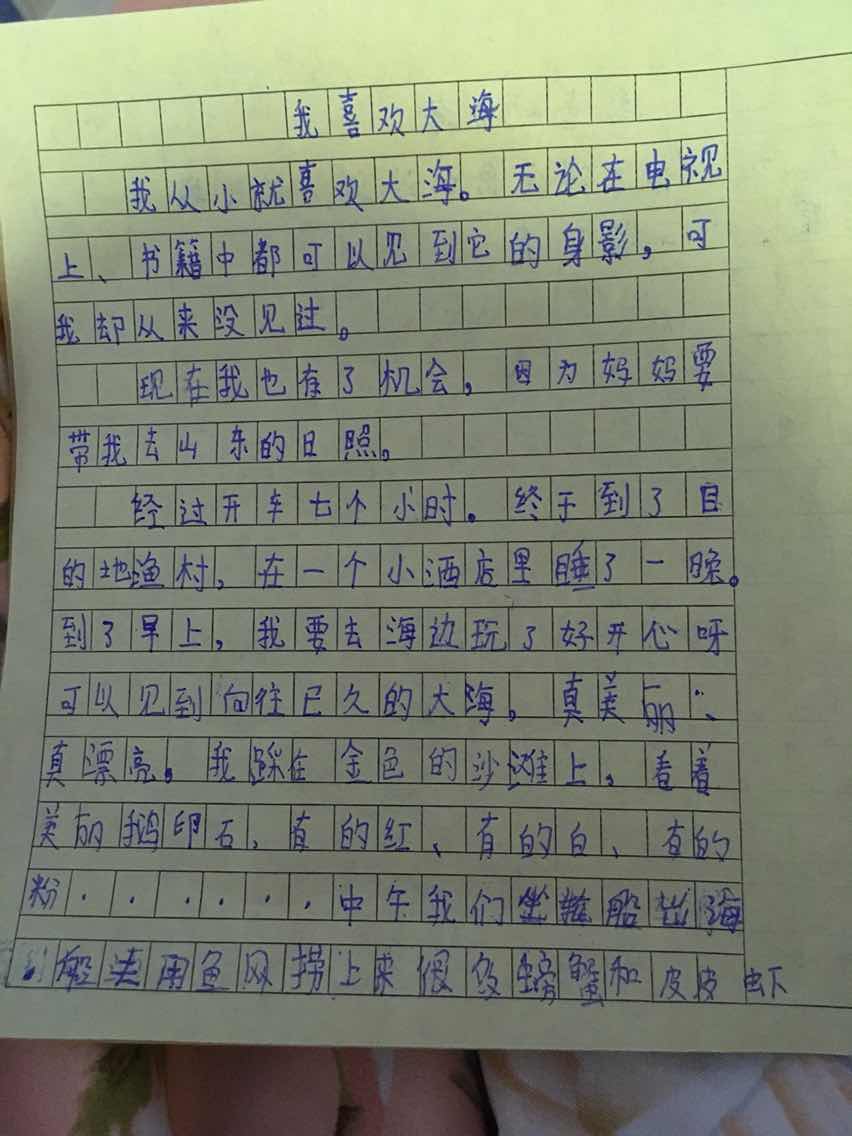 我喜欢大海
我从小就喜欢大海。无论在电视
上、书籍中都可以见到它的身影,可
我却从来没见过。
现在我也有了机会,因为妈妈要
带我去山东的日照。
经过开车七个小时。终于到了目
的地渔村,在一个小酒店里睡了一晚。
到了早上,我要去海边玩了好开心呀
可以见到向往已久的大海。真美丽、
真漂亮。我踩在金色的沙滩上,看着
美丽鹅卵石,有的红、有的白、有的
粉······中午我们坐船出海
船用鱼网捞上来很多螃蟹和皮皮虾